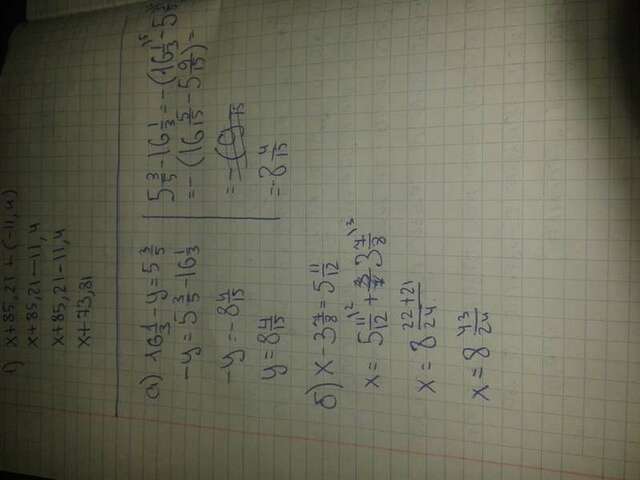 1) x+85,21+(-11,4)
x+85,21-11,4
x+85,21-11,4
x+73,81
а) 16 1/3 - y = 5 3/5
-y = 5 3/5 - 16 1/3
-y = -8 4/15
y = 8 4/15
5 3/5 - 16 1/3 = -(16 1/3 - 5
= -(16 5/15 - 5 9/15) =
= -8 4/15
б) x - 3 7/8 = 5 11/12
x = 5 11/12 \2 + 3 7/8 \3
x = 8 22+21/24
x = 8 43/24